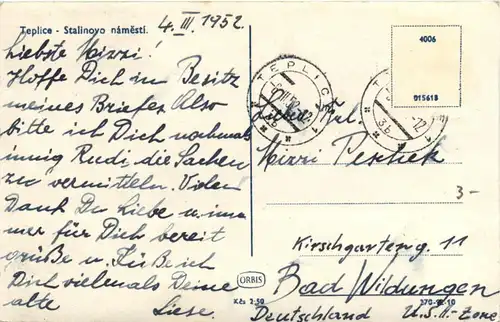 Teplice - Stalinovo náměstí.
4. III. 1952
Liebste Mizzi!
Hoffe Dich im Besitz
meines Briefes. Also
bitte ich Dich nochmals
innig Rudi, die Sachen
zu vermitteln. Vielen
Dank Du Liebe u. im
mer für Dich bereit
grüße u. küße ich
Dich vielmals Deine
alte Liese.
4006
015618
TEPLICE
Frl.
Mizzi
3-
Kirschgarteng. 11
Bad Wildungen
Deutschland U.S.-Zone
ORBIS
Kčs 2.50